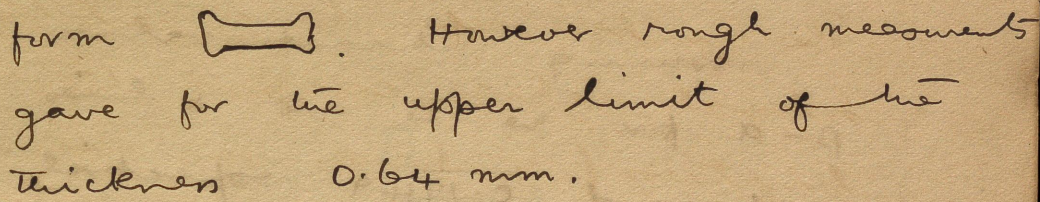 form . However rough measments
gave for the upper limit of the
thickness 0.64 mm.